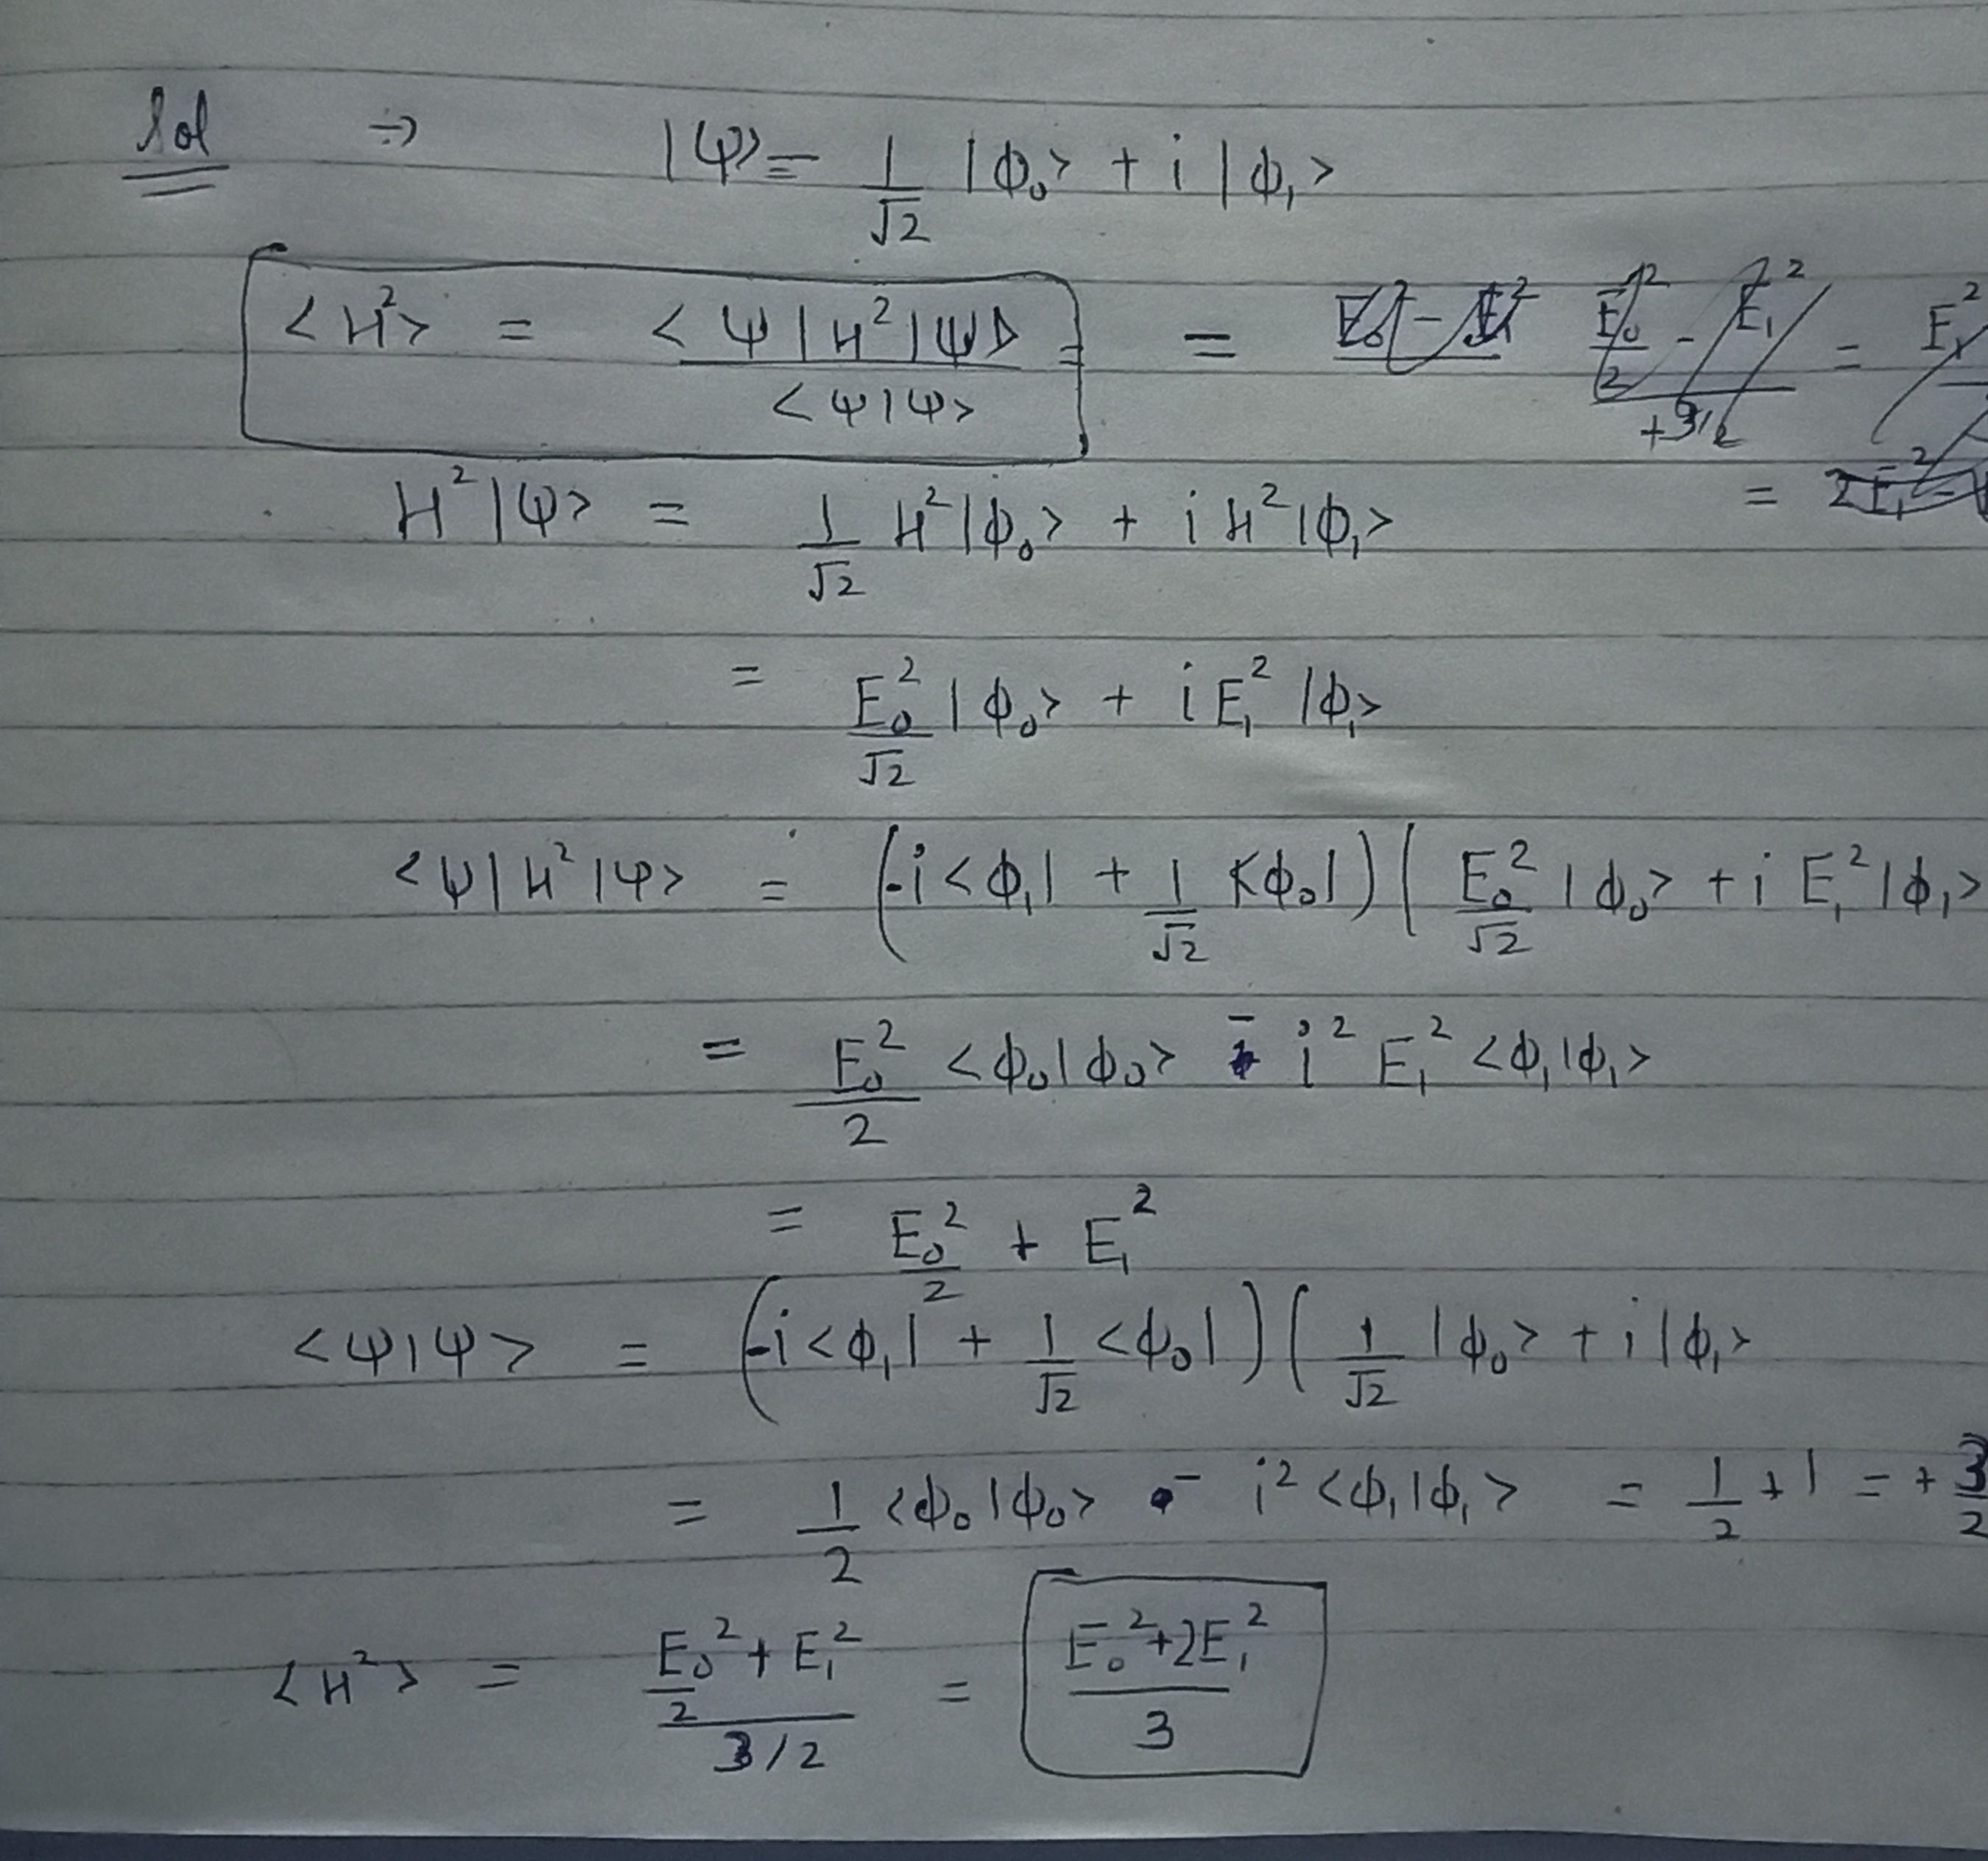 Sol ⇒ |ψ> = 1/√2 |ϕ₀> + i |ϕ₁>
<H²> = <ψ|H²|ψ> / <ψ|ψ> = =
H²|ψ> = 1/√2 H²|ϕ₀> + i H²|ϕ₁>
= E₀²/√2 |ϕ₀> + i E₁² |ϕ₁>
<ψ|H²|ψ> = (-i<ϕ₁| + 1/√2 <ϕ₀|) ( E₀²/√2 |ϕ₀> + i E₁² |ϕ₁>
= E₀²/2 <ϕ₀|ϕ₀> - i² E₁² <ϕ₁|ϕ₁>
= E₀²/2 + E₁²
<ψ|ψ> = (-i<ϕ₁| + 1/√2 <ϕ₀|) ( 1/√2 |ϕ₀> + i |ϕ₁>
= 1/2 <ϕ₀|ϕ₀> - i² <ϕ₁|ϕ₁> = 1/2 + 1 = + 3/2
<H²> = (E₀²/2 + E₁²) / (3/2) = (E₀² + 2E₁²) / 3